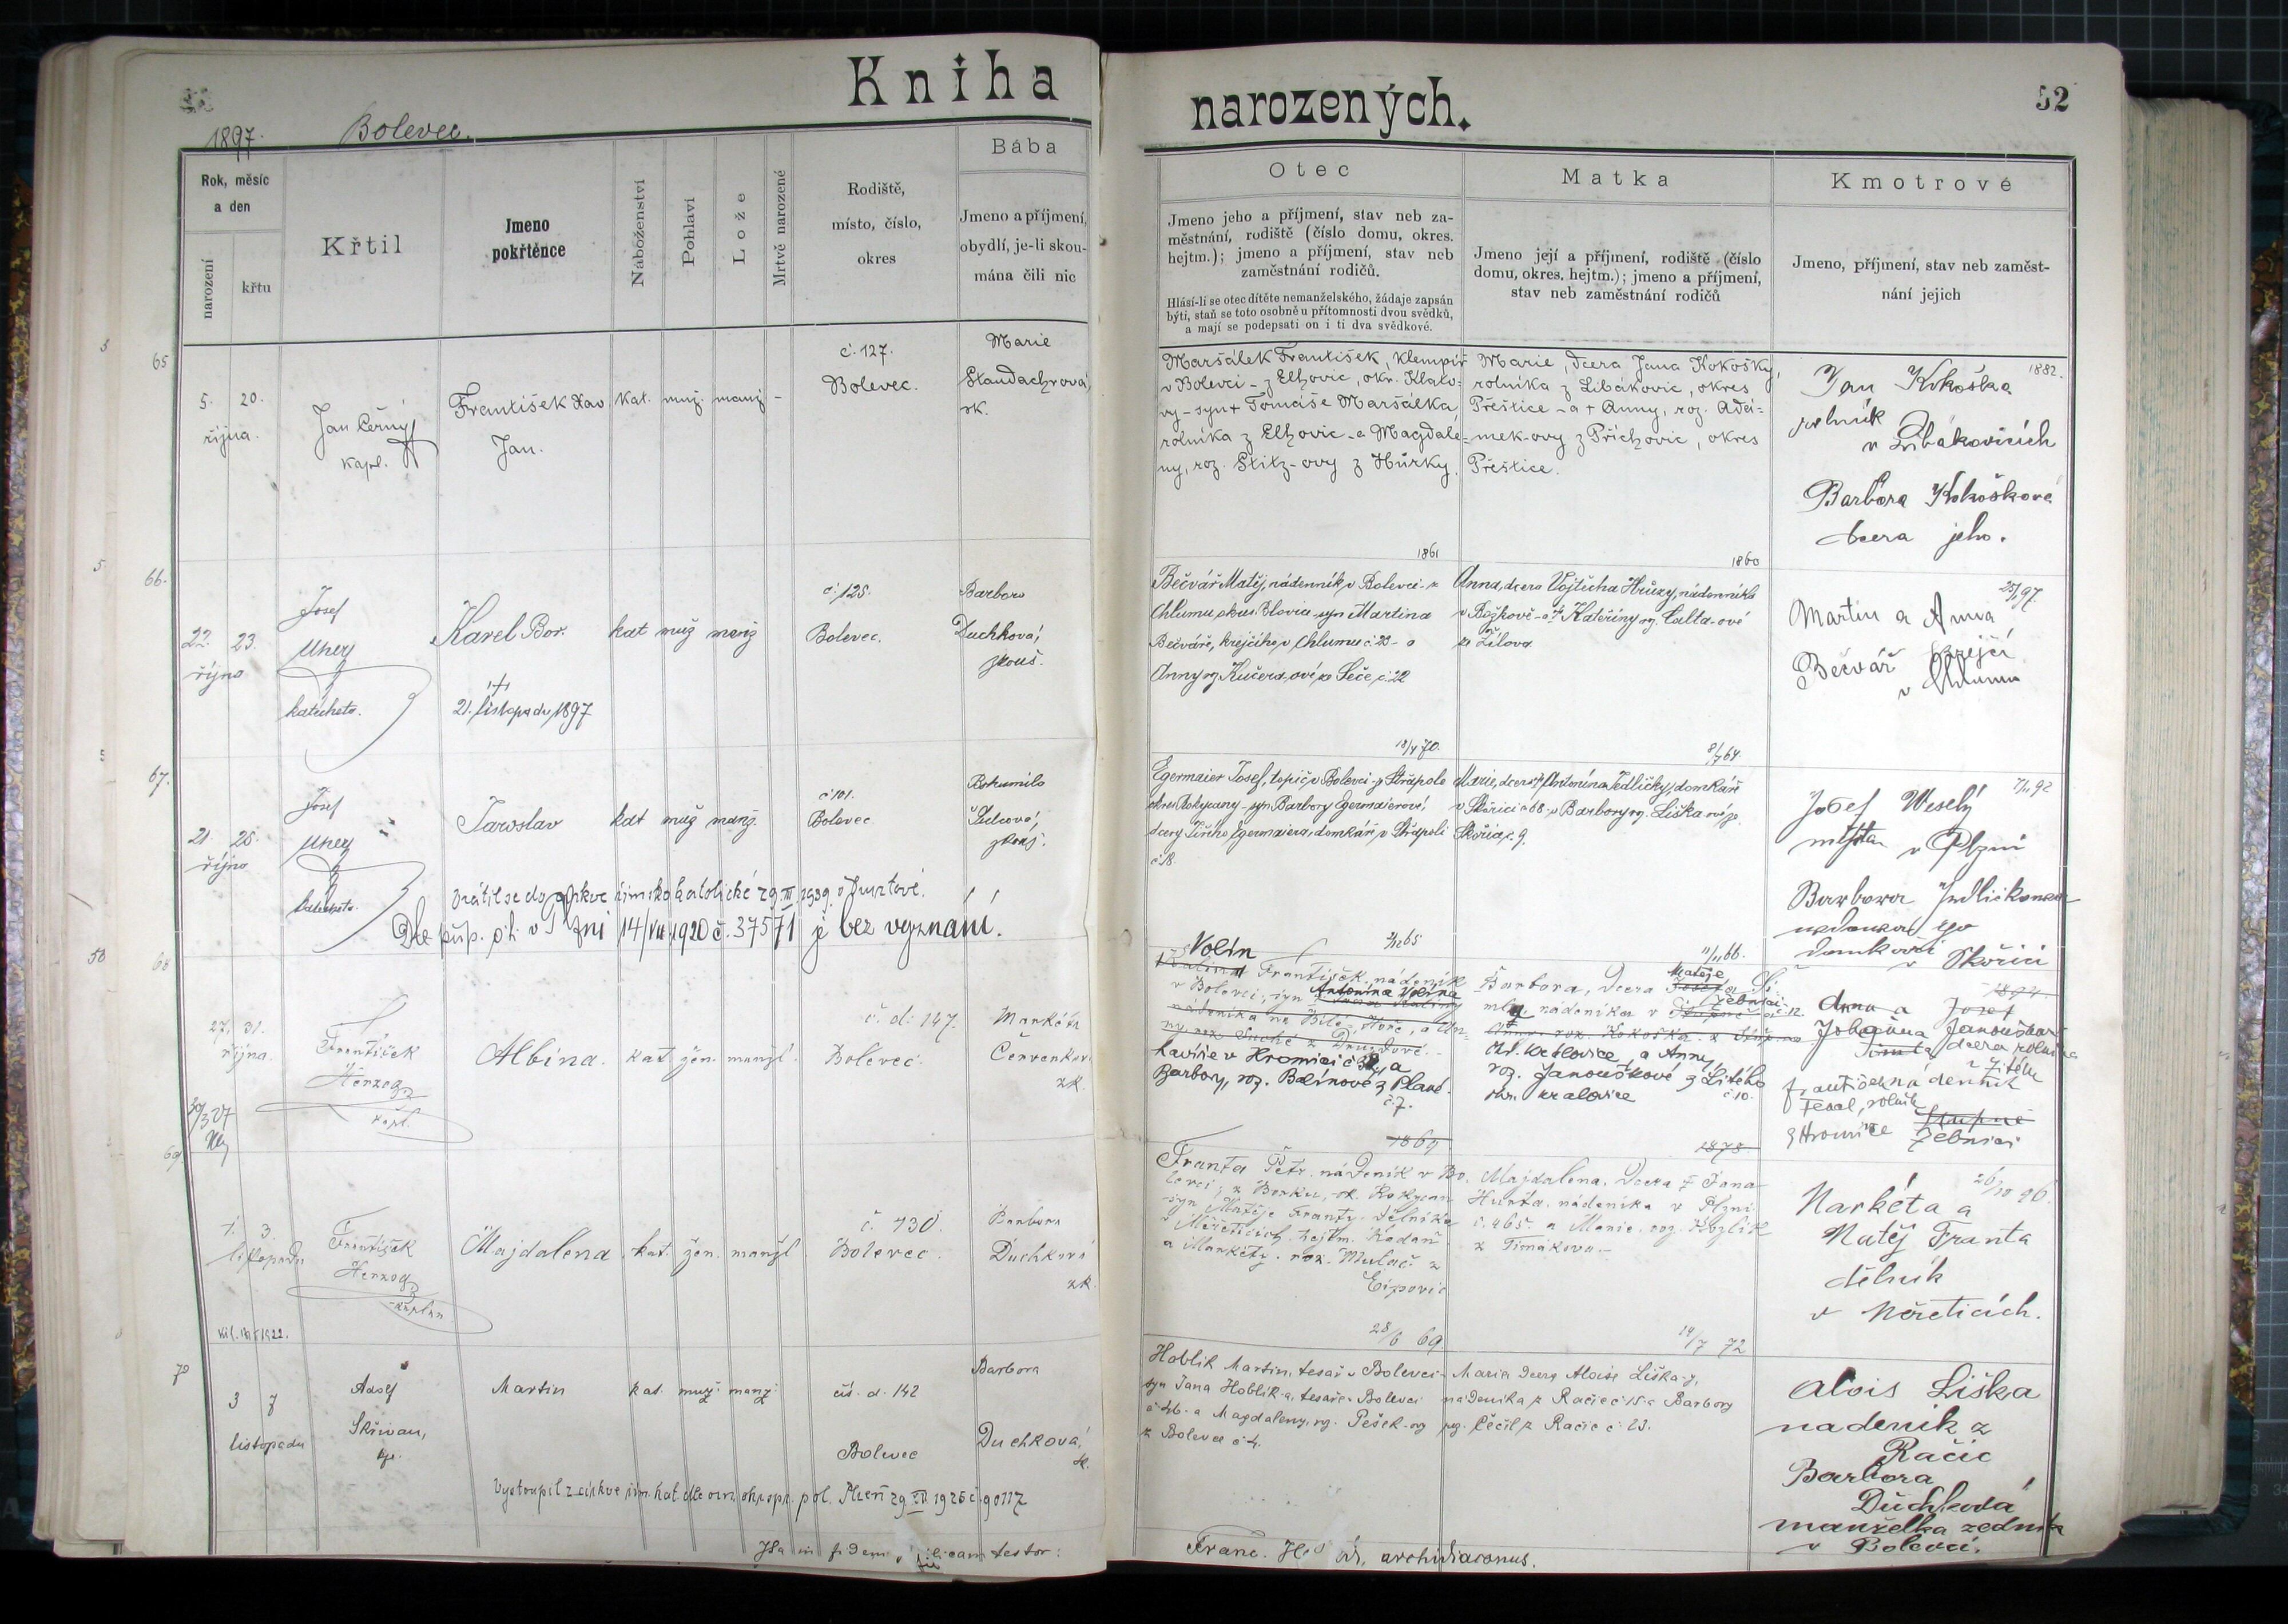 Kniha
narozených.
52
1897.
Bolevec.
Rok, měsíc
a den
narození
křtu
Křtil
Jmeno
pokřtěnce
Náboženství
Pohlaví
Lože
Mrtvě narozené
Rodiště,
místo, číslo,
okres
Bába
Jmeno a příjmení,
obydlí, je-li skou-
mána čili nic
Otec
Jmeno jeho a příjmení, stav neb za-
městnání, rodiště (číslo domu, okres.
hejtm.); jmeno a příjmení, stav neb
zaměstnání rodičů.
Hlásí-li se otec dítěte nemanželského, žádaje zapsán
býti, staň se toto osobně u přítomnosti dvou svědků,
a mají se podepsati on i ti dva svědkové.
Matka
Jmeno její a příjmení, rodiště (číslo
domu, okres. hejtm.); jmeno a příjmení,
stav neb zaměstnání rodičů
Kmotrové
Jmeno, příjmení, stav neb zaměst-
nání jejich
65
5. 20.
října.
Jan Černý
kapl.
František Xav.
Jan.
kat. muž. manž. -
č. 127.
Bolevec.
Marie
Staudachrová,
zk.
Maršálek František, klempíř
v Bolevci - z Elhovic, okr. Klato-
vy - syn + Tomáše Maršálka
rolníka z Elhovic - a Magdale-
ny, roz. Stitz-ovy z Hůrky.
Marie, dcera Jana Kokošky,
rolníka z Libákovic, okres
Přeštice - a + Anny, roz. Adá-
mek-ovy z Příchovic, okres
Přeštice.
1882.
Jan Kokoška
rolník
v Libákovicích
Barbora Kokošková
dcera jeho.
66.
22. 23.
října
Josef
Uherý
katecheta.
Karel Bor.
+
21. listopadu 1897
kat muž manž
č. 125.
Bolevec.
Barbora
Duchková,
zkouš.
1861
Bečvář Matěj, nádenník v Bolevci - z
Chlumu, okres Blovice - syn Martina
Bečváře, krejčího v Chlumu č. 29 - a
Anny roz. Kučera-ové ze Seče, č. 22
1860
Anna, dcera Vojtěcha Hrůzy, nádenníka
v Božkově - a + Kateřiny roz. Calta-ové
ze Žilova
Martin a Anna
Bečvář krejčí
v Chlumu
67.
21. 25.
října
Josef
Uherý
katecheta.
Jaroslav
kat muž manž.
č 101.
Bolevec
Bohumila
Šulcová,
zkouš.
18/4 70.
Egermaier Josef, topič v Bolevci - z Strapole
okres Rokycany - syn Barbory Egermaierové,
dcery Jiřího Egermaiera, domkáře v Strapoli
č. 18.
8/7 64.
Marie, dcera + Antonína Jedličky, domkáře
v Skořici č 68 a Barbory roz. Liška-ové ze
Skořice č. 9.
Josef Weselý
v Plzni
Skořici
Vrátil se do církve římskokatolické 29.III.1939.
Dle příp. o. h. v Plzni 14/VII 1920 č. 37571 je bez vyznání.
68
27. 31.
října.
František
Herzog
kapl.
Albína.
kat. žen. manžl.
č. d. 147.
Bolevec.
Markéta
Červenková
zk.
Volín
František, nádeník
v Bolevci, syn Antonína Volína
nádeníka na Bílé Hoře, a An-
havíře v Hromnici č 38, a
Barbory, roz. Balínové z Plané
č. 7.
11/11 66.
Barbora, dcera Matěje
nádeníka v Žebnici č. 12.
ok. Kralovice, a Anny,
roz. Janouškové z Lítého
okr. Kralovice č 10.
Anna a Josef
Johanna Janoušková
dcera rolníka
František nádenník
z Hromnice Žebnici
69
1. 3.
listopadu
František
Herzog
kaplan
Majdalena.
kat. žen. manžl.
č. 130.
Bolevec.
Barbora
Duchková
zk.
1869
Franta Petr. nádeník v Bo-
levci, z Borku, ok. Rokycan
syn Matěje Franty, dělníka
v Měřeticích, hejtm. Kadaň
a Markéty. roz. Mulač z
Ejpovic
1873
Majdalena. dcera + Jana
Hurta. nádeníka v Plzni
č. 465. a Marie. roz. Kozlík
z Timákova.-
26/10 96.
Markéta a
Matěj Franta
dělník
v Měřeticích.
70
3 7
listopadu
Adolf
Skřivan,
kpl.
Martin
kat. muž. manž.
čís. d. 142
Bolevec
Barbora
Duchková,
zk.
28/6 69
Hoblík Martin, tesař v Bolevci -
syn Jana Hoblík-a, tesaře v Bolevci
č. 46. a Magdaleny, roz. Pešek-ovy
z Bolevce č. 4.
14/7 72
Maria dcera Aloise Liška-y,
nádeníka z Račic č 15. a Barbory
roz. Čečil z Račic č. 23.
Alois Liška
nadenik z
Račic
Barbora
Duchková
manželka zedníka
v Bolevci.
Vystoupil z církve řím. kat. dle ozn. okr. spr. pol. Plzeň 29 XII 1925 č. 90117
Ita in fidem publicam testor:
Franc. archidiaconus.